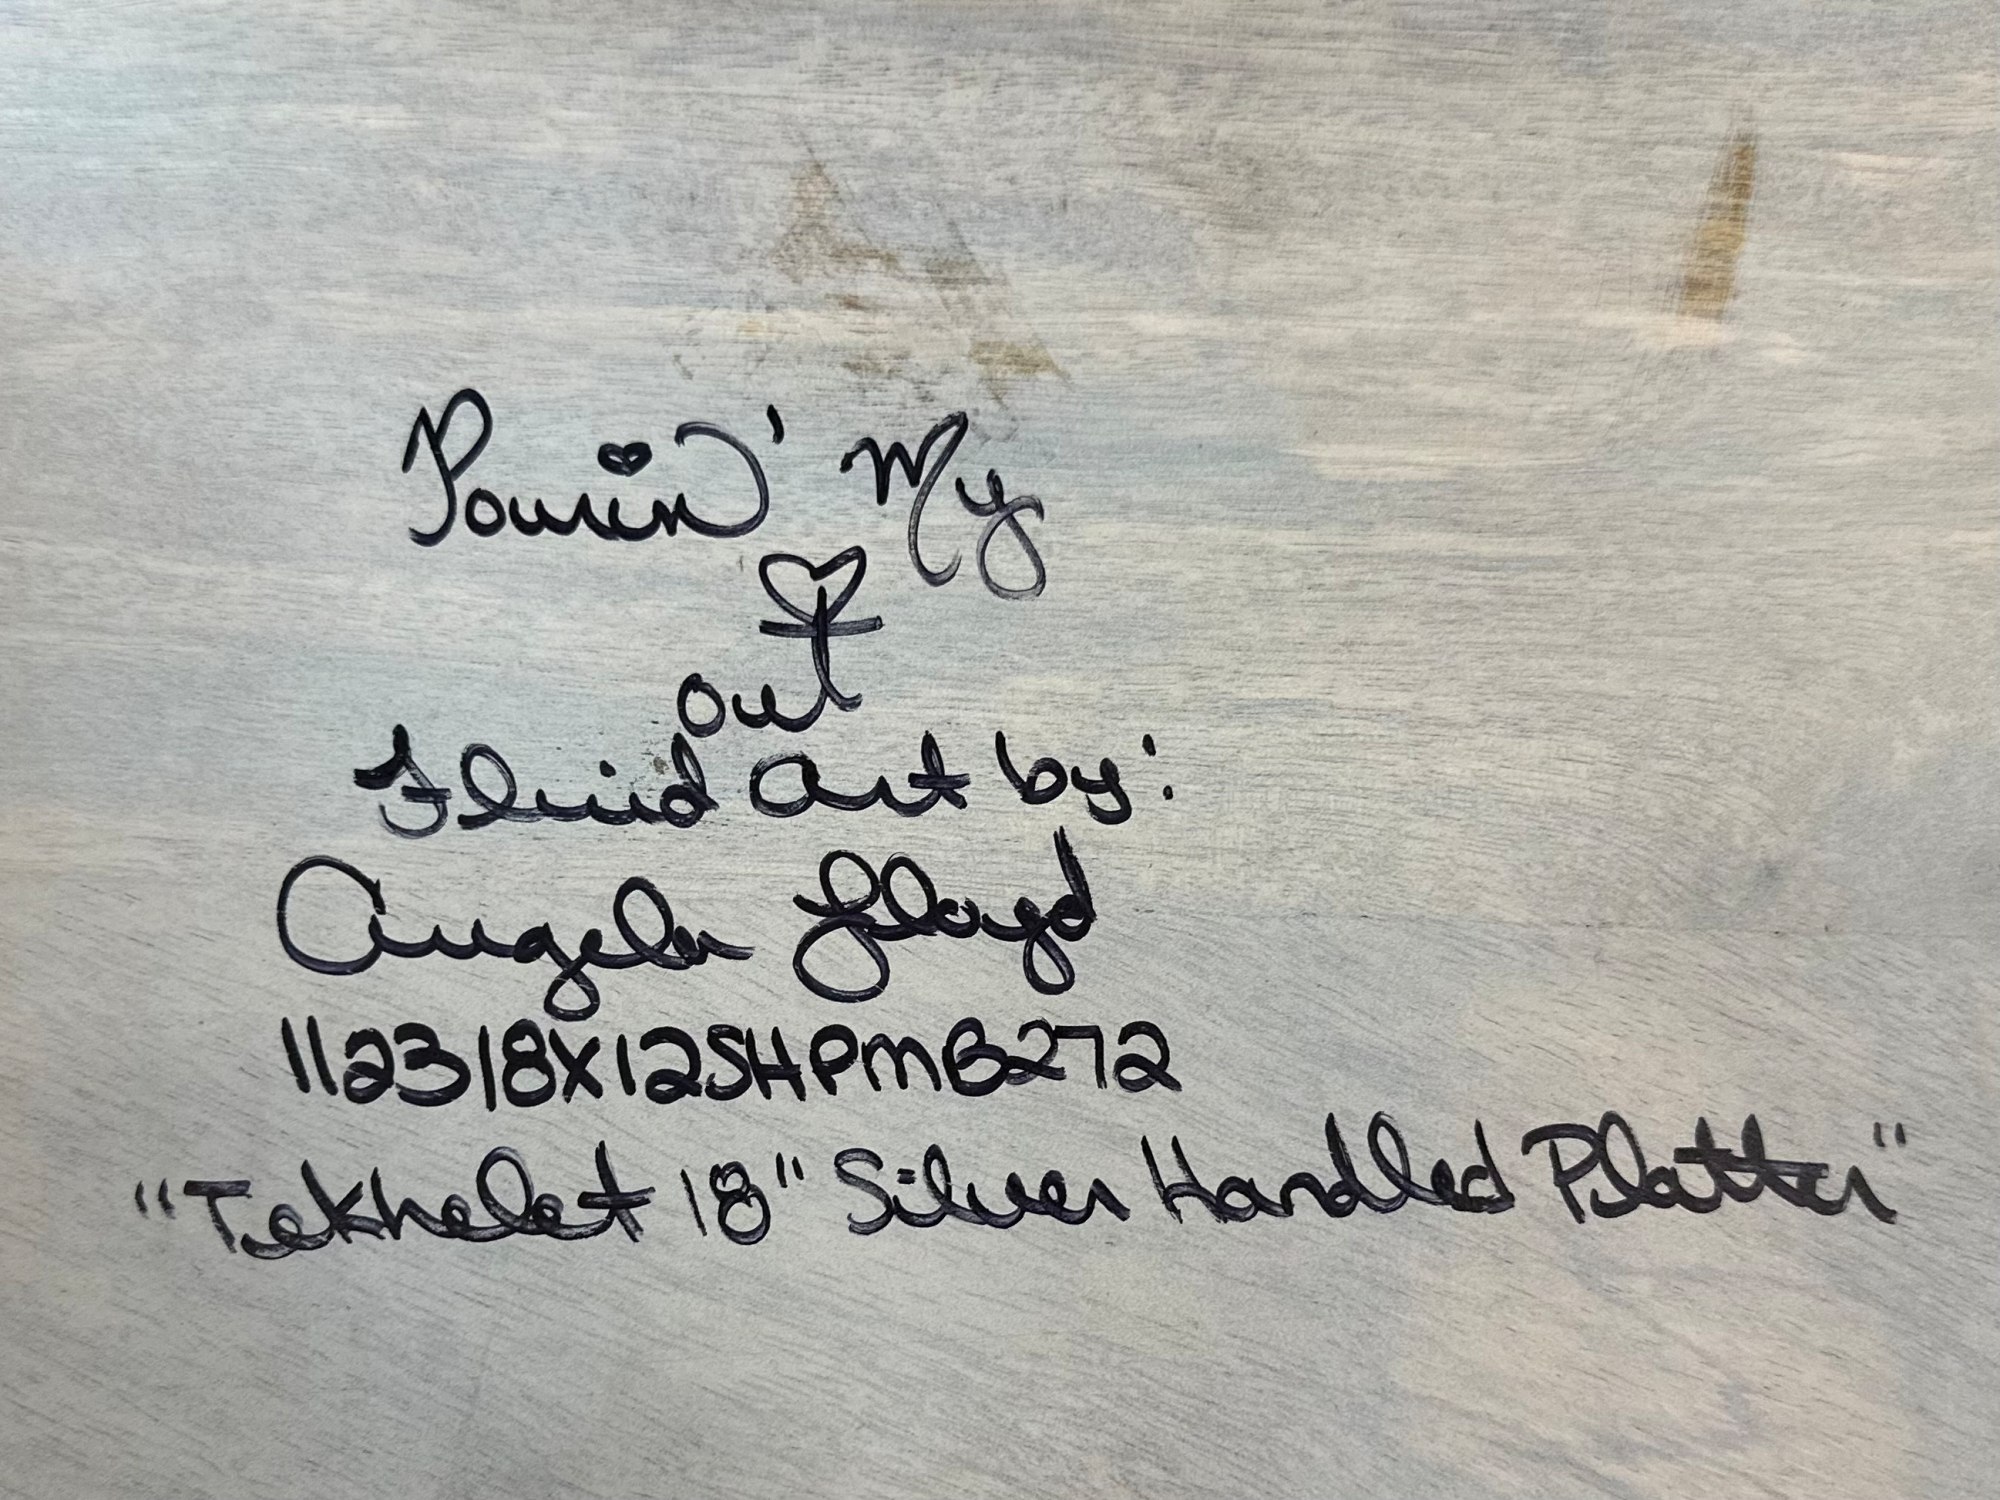 Pourin' My
♡
out
Fluid Art by:
Angela Lloyd
112318X12SHPMB272
"Tekhelet 18" Silver Handled Platter"